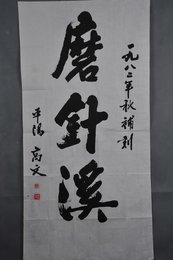 一九八二年秋補刻
磨針溪
平陽高文